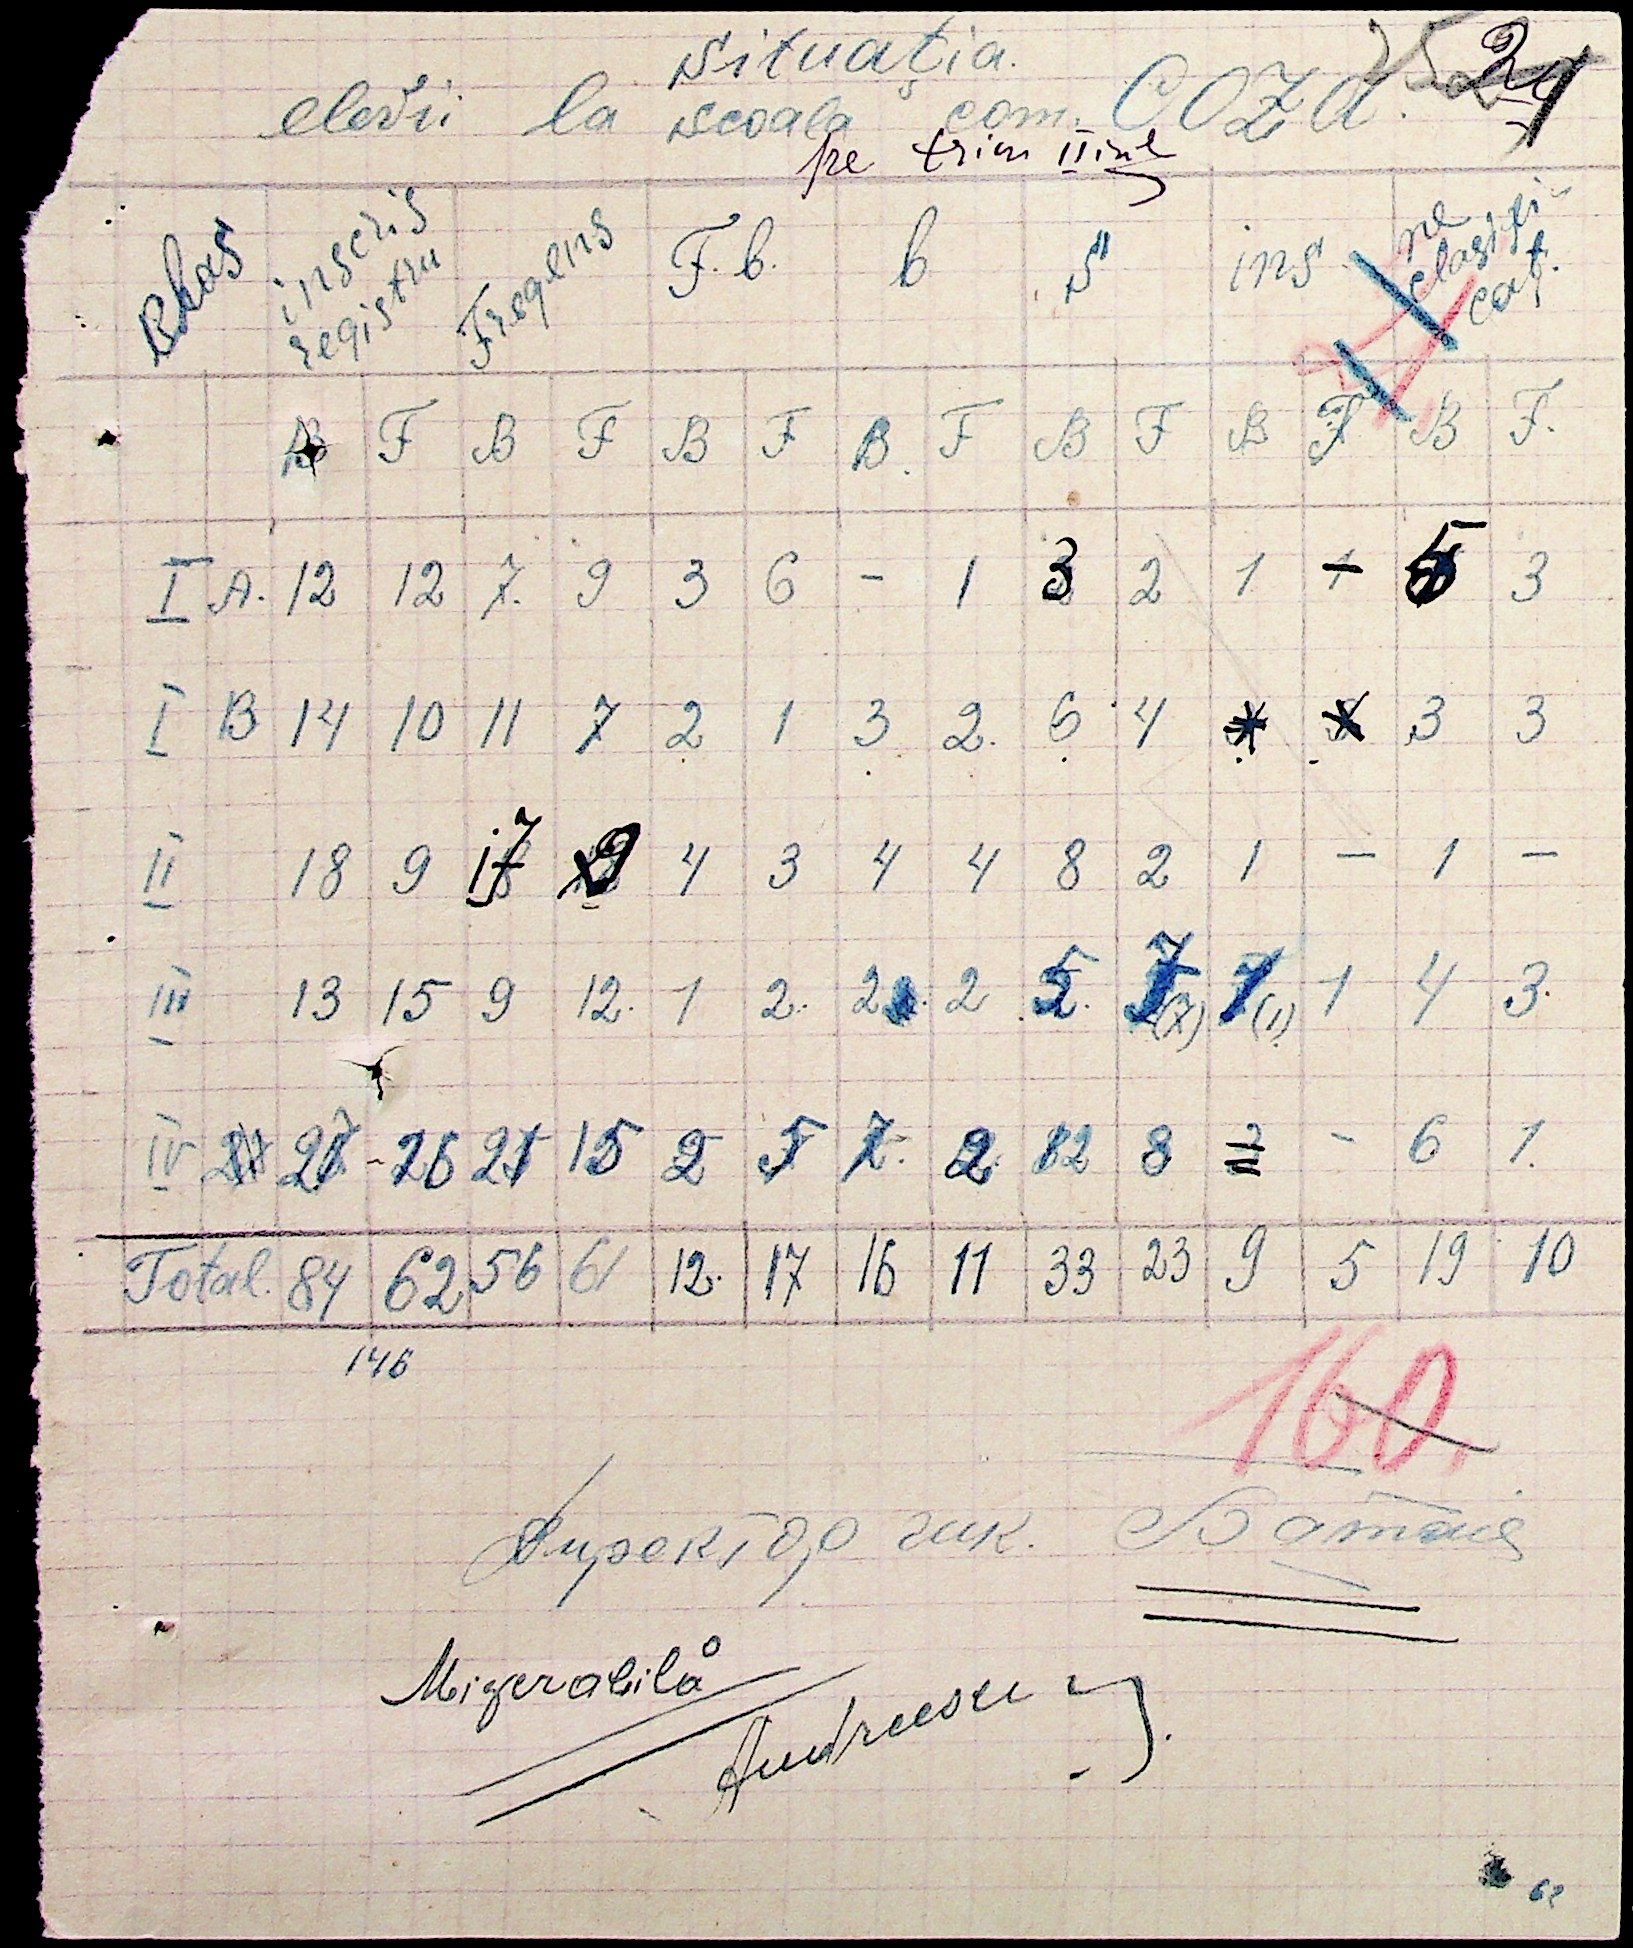 situația.
elevii la scoala com. COZA.
24
pe trim II
Clas inscris registru Freqens F. b. b s ins ne clasifi- cat.
B F B F B F B. F B F B F B F.
I A. 12 12 7. 9 3 6 - 1 3 2 1 - 5 3
I B 14 10 11 7 2 1 3 2. 6 4 3 3
II 18 9 17 9 4 3 4 4 8 2 1 - 1 -
III 13 15 9 12. 1 2. 2 2 5. 7 (7) 1 (1) 1 4 3.
IV 27 - 26 21 15 2 5 7. 2 12 8 - 6 1.
Total. 84 62 56 61 12. 17 16 11 33 23 9 5 19 10
146
160.
Директор шк.
Mizerabilă
Andreescu
62